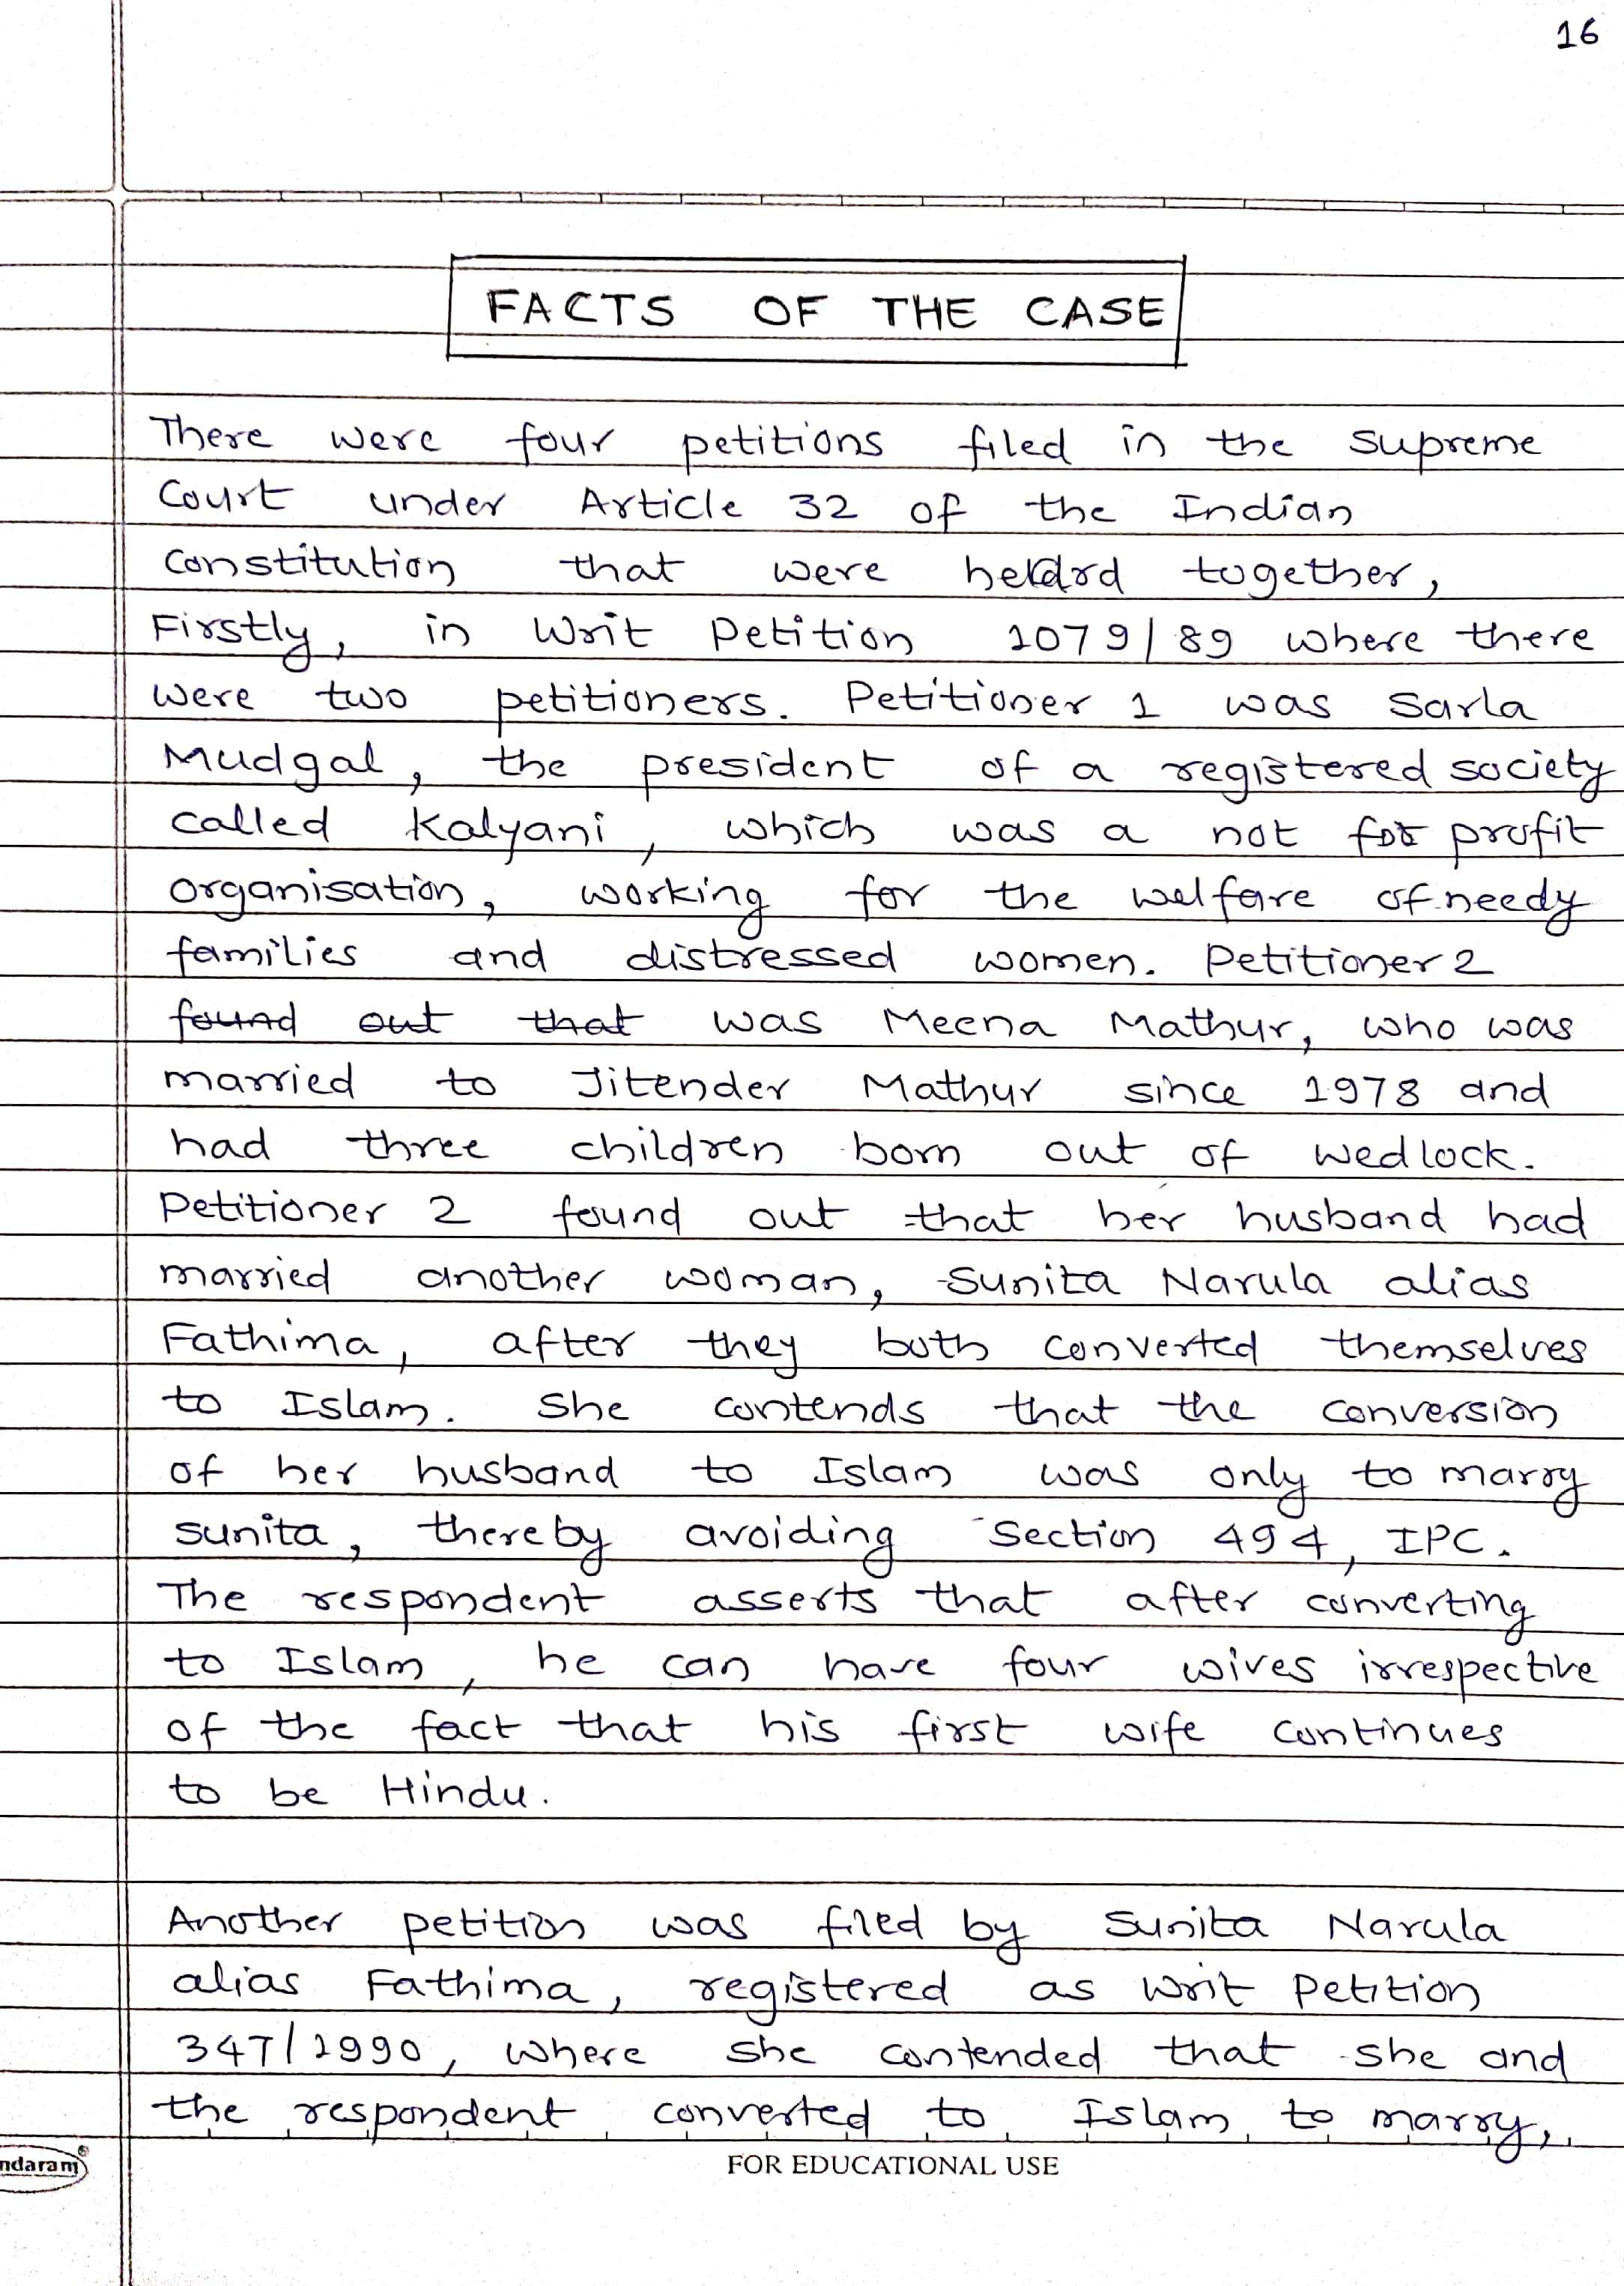 16
FACTS OF THE CASE
There were four petitions filed in the Supreme
Court under Article 32 of the Indian
Constitution that were heard together,
Firstly, in Writ Petition 1079/89 where there
were two petitioners. Petitioner 1 was Sarla
Mudgal, the president of a registered society
called Kalyani, which was a not for profit
organisation, working for the welfare of needy
families and distressed women. Petitioner 2
found out that was Meena Mathur, who was
married to Jitender Mathur since 1978 and
had three children born out of wedlock.
Petitioner 2 found out that her husband had
married another woman, Sunita Narula alias
Fathima, after they both converted themselves
to Islam. She contends that the conversion
of her husband to Islam was only to marry
sunita, thereby avoiding Section 494, IPC.
The respondent asserts that after converting
to Islam, he can have four wives irrespective
of the fact that his first wife continues
to be Hindu.
Another petition was filed by Sunita Narula
alias Fathima, registered as Writ Petition
347/1990, where she contended that she and
the respondent converted to Islam to marry,
ndaram®
FOR EDUCATIONAL USE